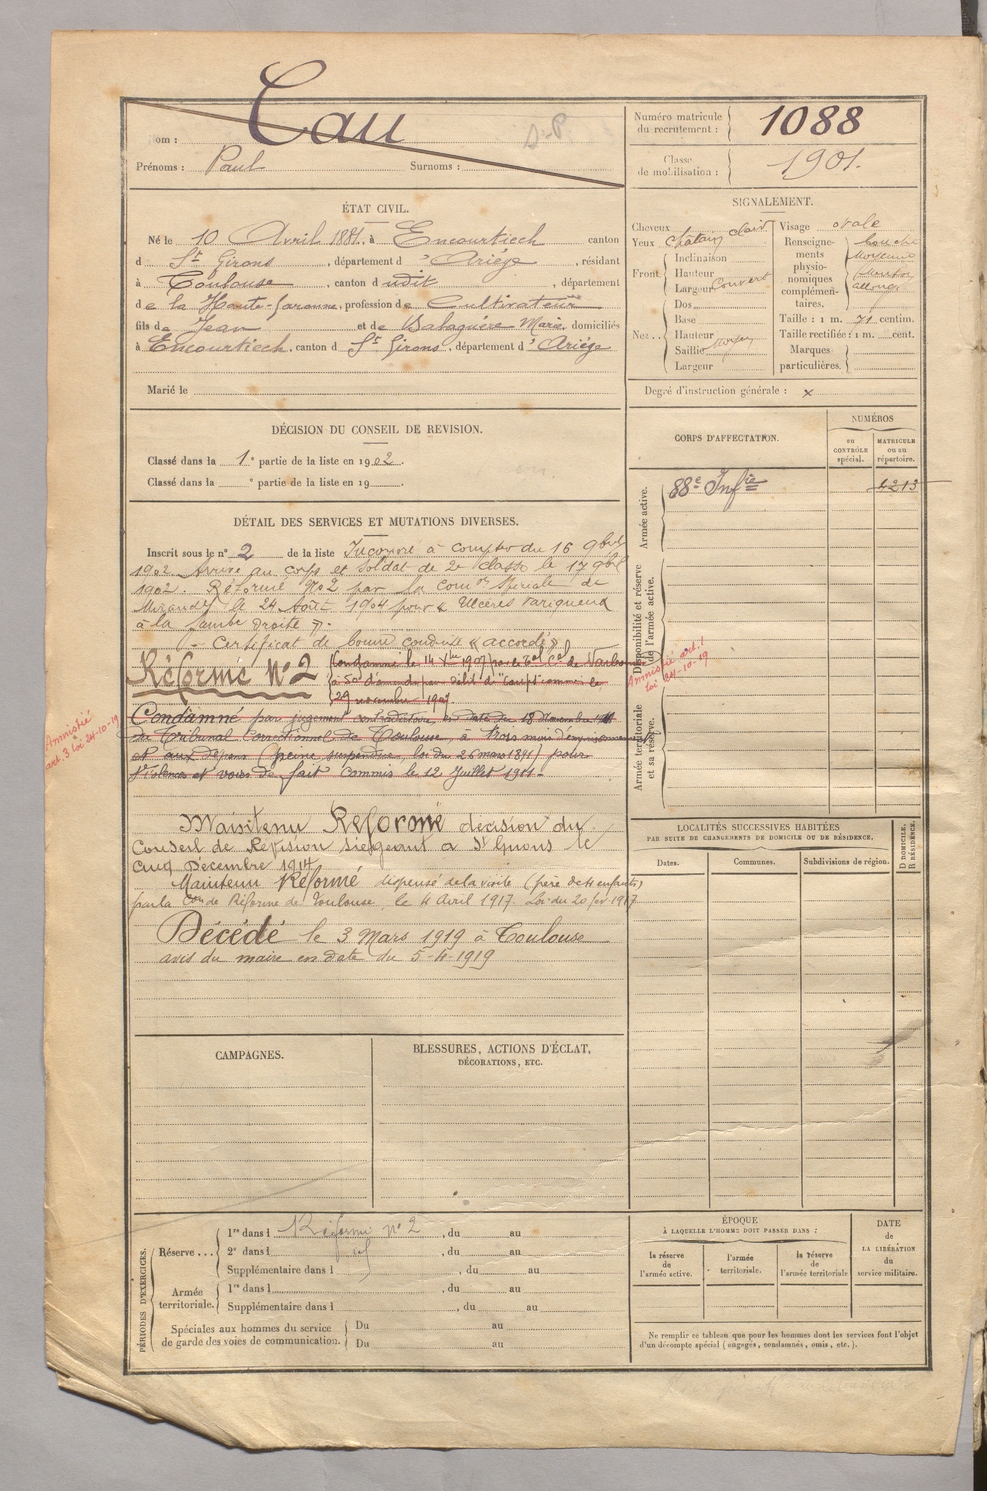 Nom : Cau
Prénoms : Paul Surnoms :
Numéro matricule du recrutement : 1088
Classe de mobilisation : 1901.
ÉTAT CIVIL.
Né le 10 Avril 1881, à Encourtiech canton
d St Girons, département d'Ariège, résidant
à Toulouse, canton dudit, département
de la Haute-Garonne, profession de Cultivateur
fils de Jean et de Balaguère Marie, domiciliés
à Encourtiech, canton d St Girons, département d'Ariège
Marié le
SIGNALEMENT.
Cheveux
Yeux châtain clair
Front
Inclinaison
Hauteur
Largeur couvert
Nez
Dos
Base
Hauteur
Saillie moyen
Largeur
Visage ovale
Renseignements physionomiques complémentaires.
bouche
moyenne
menton
allongé
Taille : 1 m. 71 centim.
Taille rectifiée : 1 m. cent.
Marques particulières.
Degré d'instruction générale : x
DÉCISION DU CONSEIL DE REVISION.
Classé dans la 1e partie de la liste en 1902.
Classé dans la e partie de la liste en 19
CORPS D'AFFECTATION.
NUMÉROS
au CONTRÔLE spécial.
MATRICULE ou au répertoire.
Armée active.
88e Infie
4213
Disponibilité et réserve de l'armée active.
Armée territoriale et sa réserve.
DÉTAIL DES SERVICES ET MUTATIONS DIVERSES.
Inscrit sous le n° 2 de la liste Incorporé à compter du 16 9bre
1902. Arrivé au corps et soldat de 2e classe le 17 9bre
1902. Réformé N°2 par la Comon spéciale de
Mirande le 24 Août 1904 pour « Ulcères variqueux
à la jambe droite ».
Certificat de bonne conduite « accordé »
Réforme N°2
Condamné le 14 Xbre 1907 par le Tbal Cel de Narbonne
à 50f d'amende par délit d' commis le
29 novembre 1907.
Amnistié art. 1
loi 24-10-19
Condamné par jugement contradictoire, en date du 18 Novembre 1911
du Tribunal Correctionnel de Toulouse, à trois mois d'emprisonnement
et aux dépens (peine suspendue, loi du 26 mars 1891) pour
Violences et voies de fait commis le 12 Juillet 1911.
Amnistié
art. 3 loi 24-10-19
Maintenu Réformé décision du
Conseil de Révision siégeant à St Girons le
cinq Décembre 1914
Maintenu Réformé dispensé de la visite (père de 4 enfants)
par la Con de Réforme de Toulouse, le 4 Avril 1917. Loi du 20 fév 1917
Décédé le 3 Mars 1919 à Toulouse
avis du maire en date du 5-4-1919
LOCALITÉS SUCCESSIVES HABITÉES
PAR SUITE DE CHANGEMENTS DE DOMICILE OU DE RÉSIDENCE.
Dates.
Communes.
Subdivisions de région.
D DOMICILE.
R RÉSIDENCE.
CAMPAGNES.
BLESSURES, ACTIONS D'ÉCLAT,
DÉCORATIONS, ETC.
PÉRIODES D'EXERCICES.
Réserve ...
1re dans l Réformé n° 2, du au
2e dans l , du au
Supplémentaire dans l , du au
Armée territoriale.
1re dans l , du au
Supplémentaire dans l , du au
Spéciales aux hommes du service de garde des voies de communication.
Du au
Du au
ÉPOQUE
À LAQUELLE L'HOMME DOIT PASSER DANS :
la réserve de l'armée active.
l'armée territoriale.
la réserve de l'armée territoriale
DATE de LA LIBÉRATION du service militaire.
Ne remplir ce tableau que pour les hommes dont les services font l'objet
d'un décompte spécial (engagés, condamnés, omis, etc.).